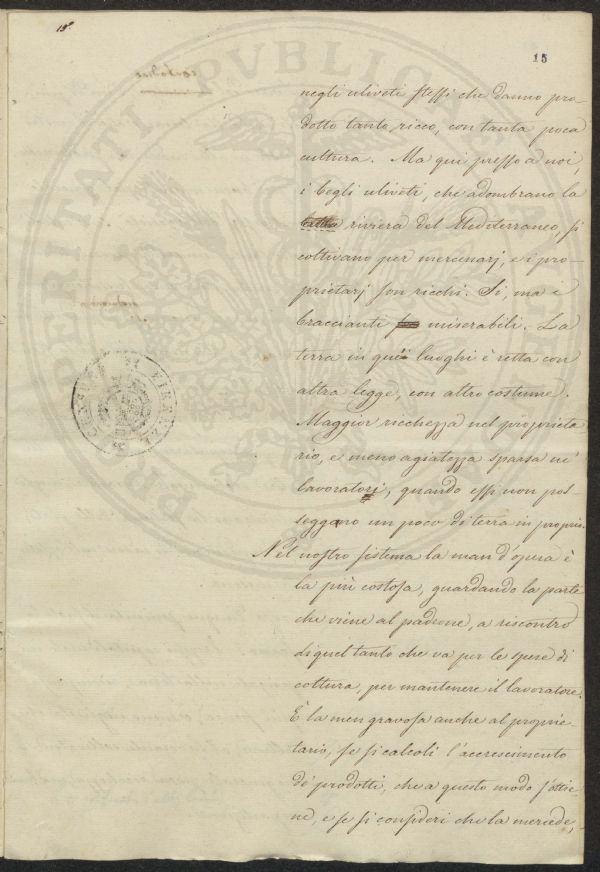 15
15
negli uliveti stessi che danno pro-
dotto tanto, ricco, con tanta poca
cultura. Ma qui presso a noi,
i begli uliveti, che adombrano la
riviera del Mediterraneo, si
coltivano per mercenarj, e i pro-
prietarj son ricchi. Sì, ma i
braccianti miserabili. La
terra in quei luoghi è retta con
altra legge, con altro costume.
Maggior ricchezza nel proprieta
rio, e meno agiatezza sparsa ne'
lavoratori, quando essi non pos-
seggano un poco di terra in proprio.
Nel nostro sistema la man d'opera è
la più costosa, guardando la parte
che viene al padrone, a riscontro
di quel tanto che va per le spese di
coltura, per mantenere il lavoratore.
È la men gravosa anche al proprie-
tario, se si calcoli l'accrescimento
de' prodotti, che a questo modo s'ottie-
ne, e se si consideri che la mercede,
PVBLICO